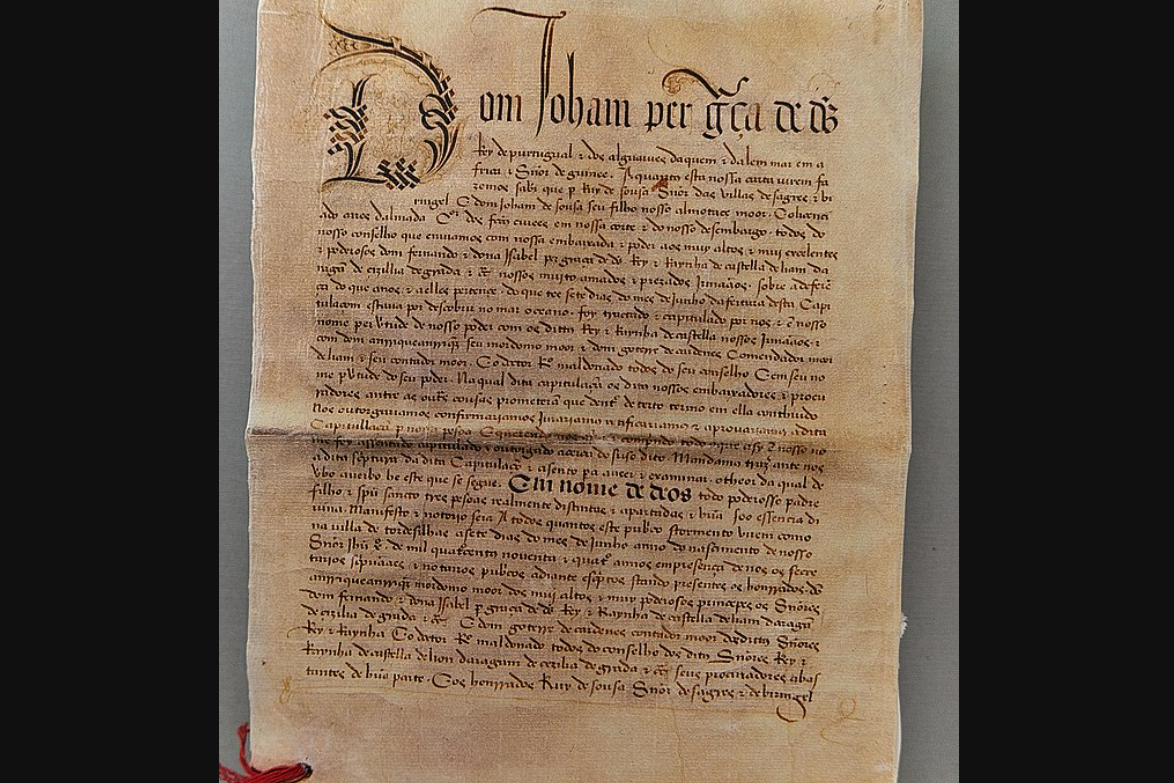 Dom Joham per gˉça de dˉs
Rey de purtugual & dos alguarves daquem & dalem mar em a
frica & Sñor de guinee. A quantos esta nossa carta virem fa
zemos saber que per Ruy de sousa Sñor das villas de sagres & bi
ringel E dom Joham de sousa seu filho nosso almotace moor. E o licenci
ado aires dalmada Coˉr dos feitos civees em nossa corte & do nosso desembargo. todos do
nosso conselho que enviamos com nossa embaixada & poder aos muy altos & mui excelentes
& poderosos dom fernando & dona Isabel per graça de dˉs Rey & Raynha de castella de liam da
ragã de cizilia de grada & cˉ. nossos muito amados & prezados Irmaãos. sobre a deferẽ
ça do que a nos & a elles pertence. do que tee sete dias do mes de Junho da feitura desta Capi
tulaçom estava por descobrir no mar oceano. foy tractado & capitulado por nos. & ẽ nosso
nome per vˉtude de nosso poder com os dittos Rey & Raynha de castella nossos Irmaãos. &
com dom anrrique anrriqz seu mordomo moor & dom goterre de cardenes Comendador moor
de liam & seu contador moor. E o doctor Rº maldonado todos do seu conselho E em seu no
me pˉ vˉtude do seu poder. Na qual dita capitulaçã os ditos nossos embaixadores & procu
radores antre as outˉs cousas prometeram que dentˉ de certo termo em ella conthiudo
Nos outorgariamos confirmariamos Jurariamos retificariamos & aprovariamos a dita
Capitullaçã pˉ nossa pesoa E querendo nos todo o que asy ẽ nosso no
me foy assentado capitulado & outorgado acerca do suso dito. Mandamos trazˉ ante nos
a dita scpritura da dita Capitulaçõ & asento pˉa a veer & examinar. o theor da qual de
vˉbo a verbo he este que se segue. Em nome de deos todo poderosso padre
filho & spũ sancto tres pesoas realmente distintas & apartadas & hũa soo essencia di
vina. Manifesto & notorio seia A todos quantos este pubˡco stormento virem como
na villa de tordesilhas a sete dias do mes de Junho anno do nascimento de nosso
Sñor Jhũ xˉ. de mil quatˉcentos noventa & quatˉ annos em presença de nos os secre
tarios scpvaães & notarios pubˡcos adiante escpˉtos stando presentes os honrrados. dõ
anrrique anrriqz mordomo moor dos mui altos & muy poderosos princepes os Sñores
dom fernando & dona Isabel pˉ graça de dˉs Rey & Raynha de castella de liam daragã
de cizilia de grada & cˉ. E dom goterre de cardenes contador moor dos dittos Sñores
Rey & Raynha E o doctor Rº maldonado todos do conselho dos ditos Sñores Rey &
Raynha de castella de liom daragam de cezilia de grada & cˉ seus procuradores abas
tantes de hũa parte. E os honrrados Ruy de sousa Sñor de sagres & de biringel